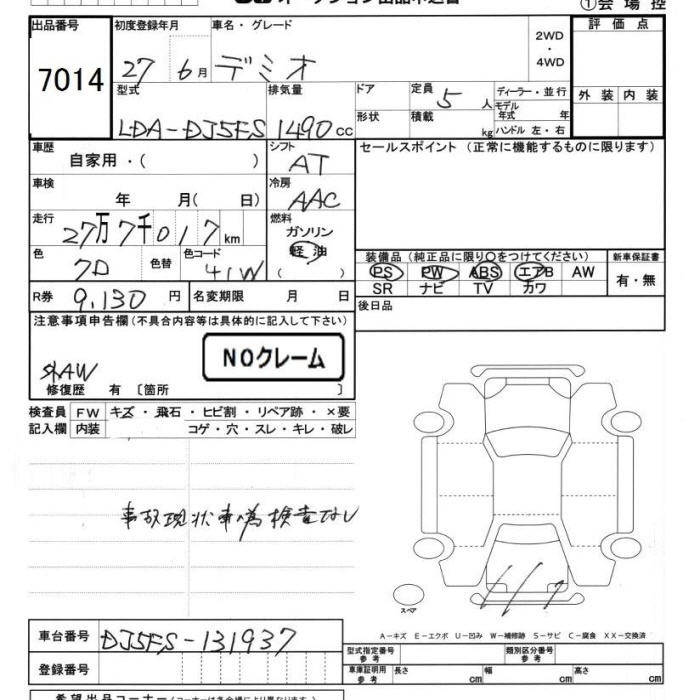 ①会 場 控
出品番号 初度登録年月 車名・グレード 2WD ・ 4WD 評 価 点
7014 27 6月 デミオ
型式 排気量 ドア 定員 5 人 ディーラー・並行 外 装 内 装
LDA-DJ5FS 1490 cc 形状 積載 kg モデル年式 年
ハンドル 左・右
車歴 自家用・( ) シフト AT セールスポイント (正常に機能するものに限ります)
車検 年 月( 日) 冷房 AAC
走行 27万7千017 km 燃料 ガソリン 軽 油 ( )
色 色替 色コード 41W
装備品 (純正品に限り○をつけてください) 新車保証書
PS PW ABS エアB AW 有・無
SR ナビ TV カワ
R券 9,130 円 名変期限 月 日 後日品
注意事項申告欄(不具合内容等は具体的に記入して下さい)
NOクレーム
外AW
修復歴 有 〔箇所 〕
検査員 FW キズ・飛石・ヒビ割・リペア跡・×要
記入欄 内装 コゲ・穴・スレ・キレ・破レ
事故現状車為検査なし
スペア
A-キズ E-エクボ U-凹み W-補修跡 S-サビ C-腐食 XX-交換済
車台番号 DJ5FS-131937
型式指定番号 参考 類別区分番号 参考
登録番号 車庫証明用 参考 長さ cm 幅 cm 高さ cm
希望出品コーナー